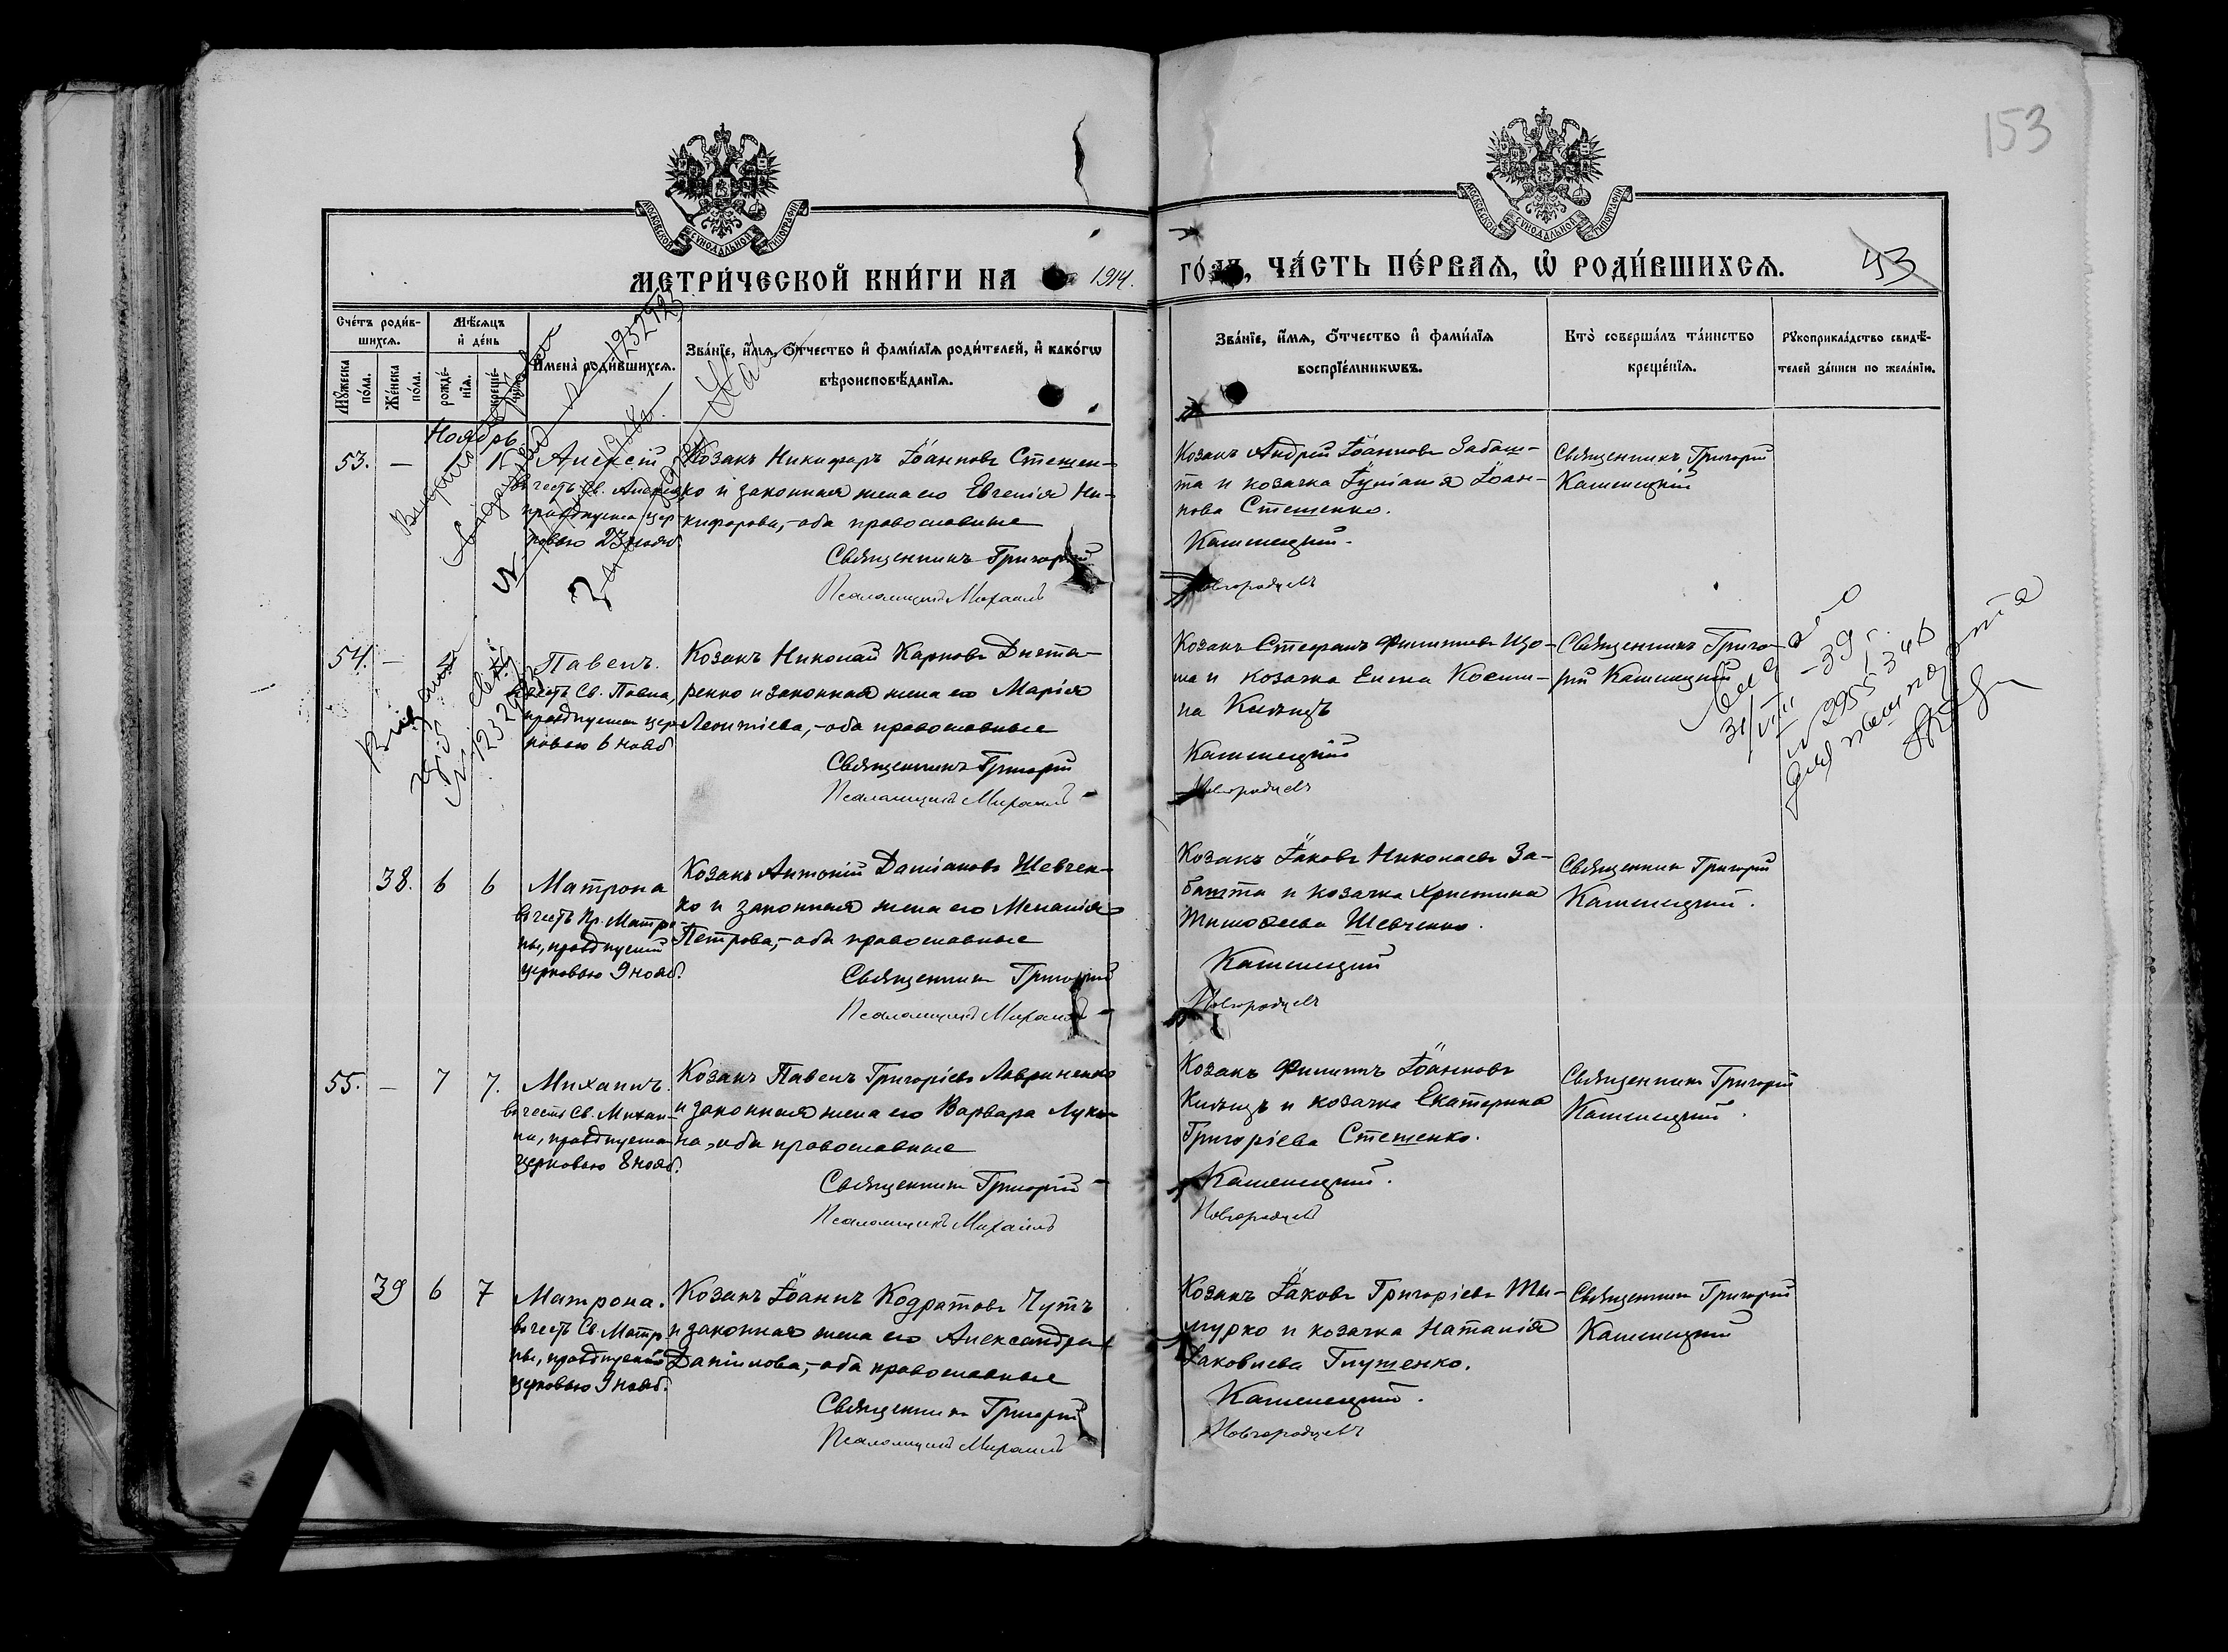 153
МОСКОВСКОЙ СѴНОДАЛЬНОЙ ТИПОГРАФІИ
МОСКОВСКОЙ СѴНОДАЛЬНОЙ ТИПОГРАФІИ
МЕТРИ́ЧЕСКОЙ КНИ́ГИ НА 1914. ГО́ДЪ, ЧА́СТЬ ПЕ́РВАЯ, Ѽ РОДИ́ВШИХСЯ.
43
Сче́тъ роди́в-
шихся.
Мѣ́сяцъ
и҆ де́нь
Мꙋ́жеска
по́ла.
Же́нска
по́ла.
рожде́-
нїя.
креще́-
нїя.
И҆мена̀ роди́вшихся.
Зва́нїе, и҆́мя, ѻ҆́тчество и҆ фами́лїя роди́телей, и҆ како́гѡ
вѣроисповѣ́данїя.
Зва́нїе, и҆́мя, ѻ҆́тчество и҆ фами́лїя
воспрїе́мникѡвъ.
Кто̀ соверша́лъ та́инство
креще́нїя.
Рꙋкоприкла́дство свидѣ́-
телей за́писи по жела́нїю.
Ноябрь
53. —
Алексѣй
въ честь Св. Алексія
празднуема цер-
ковью 23 нояб.
Козакъ Никифоръ Іоанновъ Стешен-
ко и законная жена его Евгенія Ни-
кифорова,- оба православные
Священникъ Григорій
Псаломщикъ Михаилъ
Козакъ Андрей Іоанновъ Забаш-
та и козачка Іуліанія Іоан-
нова Стешенко.
Каменецкій.
Новгородцевъ
Священникъ Григорій
Каменецкій
54. — 4
Павелъ.
въ честь Св. Павла,
празднуема цер-
ковью 6 нояб
Козакъ Николай Карповъ Дихта-
ренко и законная жена его Марія
Леонтіева,- оба православные
Священникъ Григорій
Псаломщикъ Михаилъ
Козакъ Стефанъ Филипповъ
и козачка Елена
на Кильецъ
Каменецкій
Новгородцевъ
Священникъ Григо-
рій Каменецкій
38. 6 6
Матрона
въ честь Пр. Матро-
ны, празднуемой
церковью 9 нояб.
Козакъ Антоній Даміановъ Шевчен-
ко и законная жена его Меланія
Петрова,- оба православные
Священникъ Григорій
Псаломщикъ Михаилъ
Козакъ Іаковъ Николаевъ За-
башта и козачка Христина
Тимоѳеева Шевченко.
Каменецкій
Новгородцевъ
Священникъ Григорій
Каменецкій.
55. — 7 7.
Михаилъ.
въ честь Св. Михаи-
ла, празднуема
церковью 8 нояб.
Козакъ Павелъ Григоріевъ Лавриненко
и законная жена его Варвара Луки-
на, оба православные
Священникъ Григорій
Псаломщикъ Михаилъ
Козакъ Филиппъ Іоанновъ
Кильецъ и козачка Екатерина
Григоріева Стешенко.
Каменецкій.
Новгородцевъ
Священникъ Григорій
Каменецкій.
39 6 7
Матрона.
въ честь Св. Матро-
ны, празднуемой
церковью 9 нояб.
Козакъ Іоаннъ Кодратовъ Чутъ
и законная жена его Александра
Даніилова,- оба православные
Священникъ Григорій
Псаломщикъ Михаилъ
Козакъ Іаковъ Григоріевъ Ты-
мурко и козачка Наталія
Іаковлева Глушенко.
Каменецкій.
Новгородцевъ
Священникъ Григорій
Каменецкій